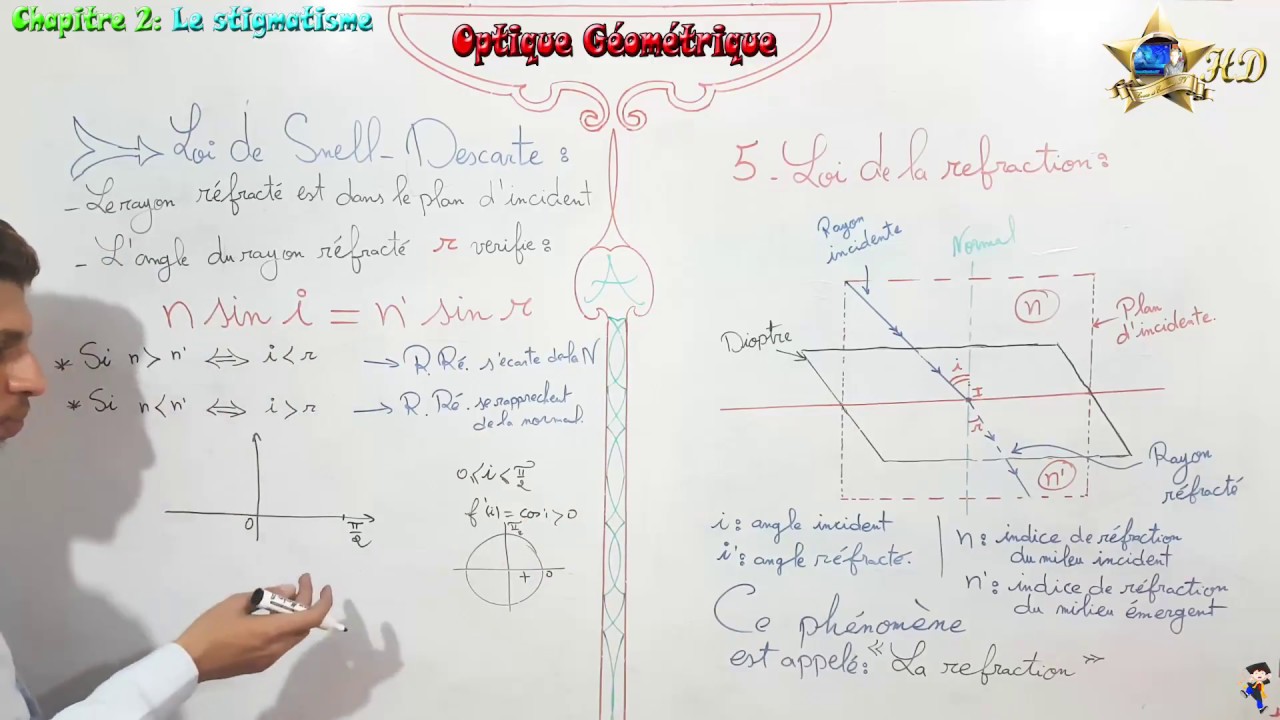 Chapitre 2: Le stigmatisme
Optique Géométrique
HD
Loi de Snell-Descarte:
- Le rayon réfracté est dans le plan d'incident
- L'angle du rayon réfracté r verifie:
n sin i = n' sin r
* Si n > n' ⟺ i < r → R. Ré. s'écarte de la N
* Si n < n' ⟺ i > r → R. Ré. se rapprechent
de la normal.
0
π/2
0 ⩽ i ⩽ π/2
f'(i) = cos i > 0
π/2
+ 0
A
5 - Loi de la refraction:
Rayon
incidente
Normal
n
Plan
d'incidente.
Dioptre
i
I
r
n'
Rayon
réfracté
i: angle incident
i': angle réfracté.
n: indice de réfraction
du milieu incident
n': indice de réfraction
du milieu émergent
Ce phénomène
est appelé: « La refraction »